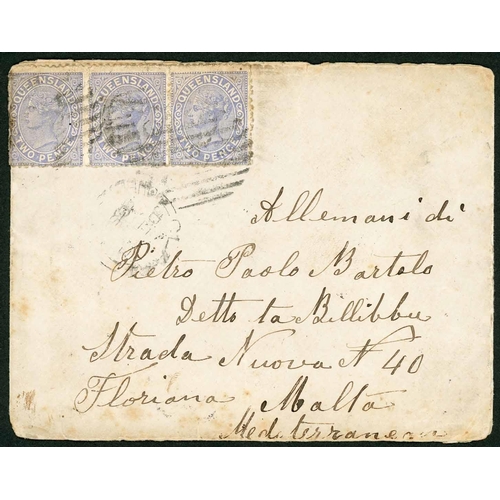 QUEENSLAND QUEENSLAND QUEENSLAND
TWO PENCE TWO PENCE TWO PENCE
Allemani di
Pietro Paolo Bartolo
Detto ta Billibbu
Strada Nuova N 40
Floriana Malta
Mediterranean